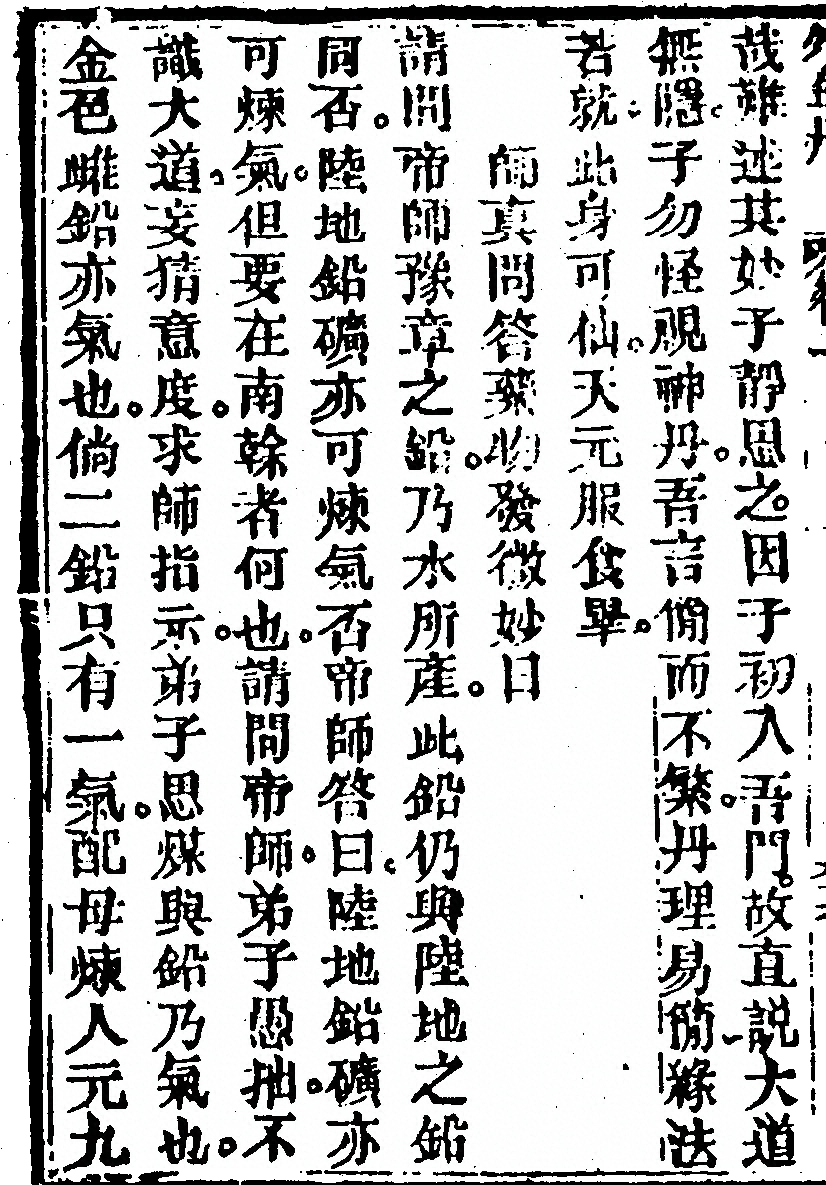 哉難述其妙子靜思之因子初入吾門故直説大道
無隱子勿怪覞神丹吾言備而不繁丹理易簡緣法
若就此身可仙天元服食畢
師真問答藥物發微妙曰
請問帝師豫章之鉛乃水所產此鉛仍與陸地之鉛
同否陸地鉛礦亦可煉氣否帝師答曰陸地鉛礦亦
可煉氣但要在南榦者何也請問帝師弟子愚拙不
識大道妄猜意度求師指示弟子思煤與鉛乃氣也
金色雌鉛亦氣也倘二鉛只有一氣配母煉人元九